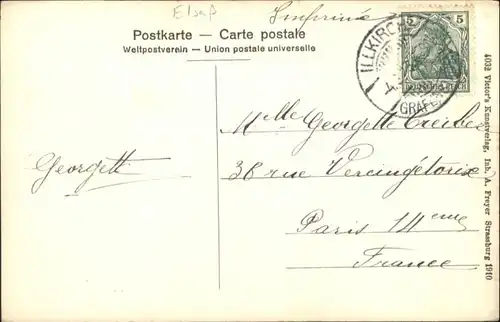 Elsaß
Imprimé
Postkarte - Carte postale
Weltpostverein - Union postale universelle
5 5
ILLKIRCH
GRAFE
Mlle Georgette
Georgette
36 rue Vercingétorix
Paris 14eme
France
4032 Victor's Kunstverlag, Inh. A. Freyer Strassburg 1910